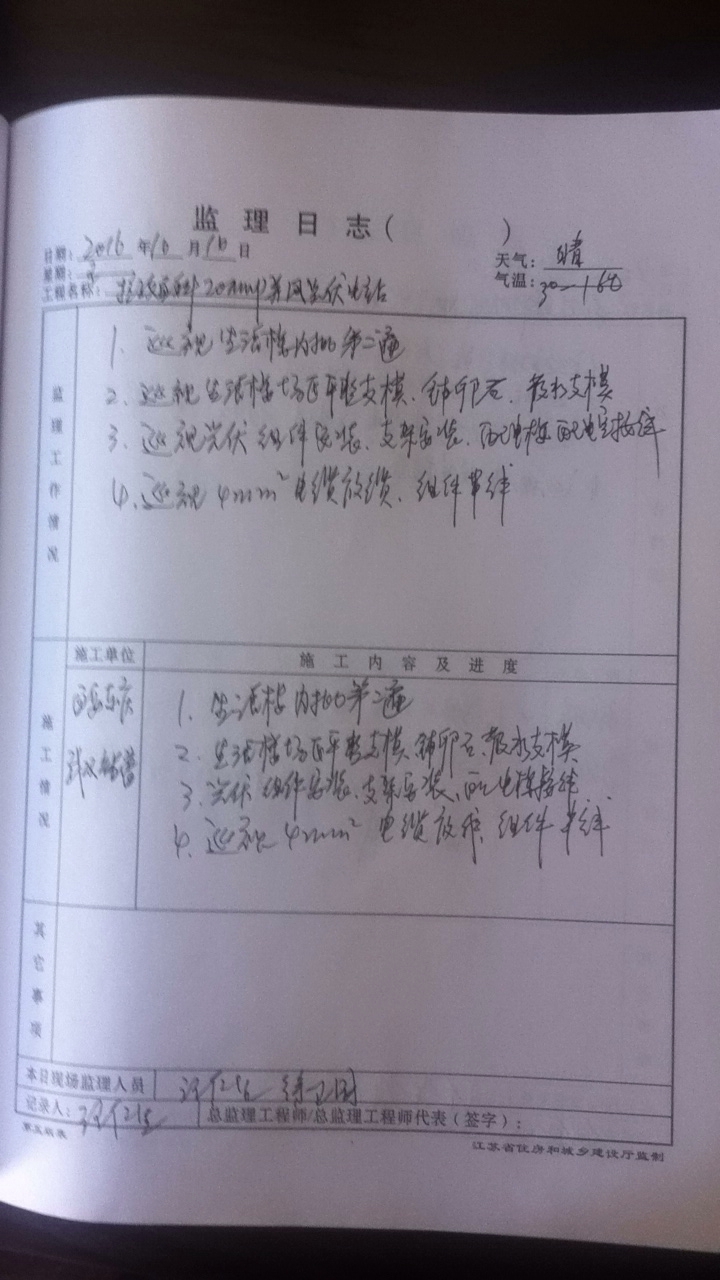 监理日志（ ）
日期：2016年10月16日
天气：晴
星期：
气温：
工程名称：20MWp并网光伏电站
监理工作情况
1、巡视生活楼内批第二遍
2、巡视生活楼场区平整支模、铺卵石、散水支模
3、巡视光伏组件安装、支架安装、配电
4、巡视4mm²电缆放缆、组件串线
施工情况
施工单位
施工内容及进度
1、生活楼内批第二遍
2、生活楼场区平整支模、铺卵石、散水支模
3、光伏组件安装、支架安装、配电接线
4、巡视4mm²电缆放缆、组件串线
其它事项
本日现场监理人员
记录人：
总监理工程师/总监理工程师代表（签字）：
第五版表
江苏省住房和城乡建设厅监制